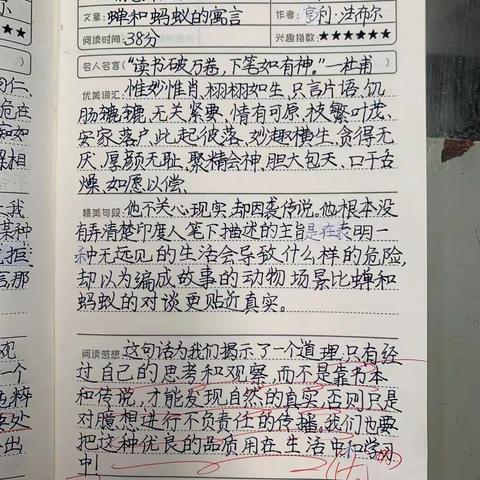 文章: 蝉和蚂蚁的寓言 作者: 亨利·法布尔
阅读时间: 38分 兴趣指数: ★★★★★
名人名言 “读书破万卷,下笔如有神。”—杜甫
优美词汇: 惟妙惟肖、栩栩如生、只言片语、饥
肠辘辘、无关紧要、情有可原、枝繁叶茂、
安家落户、此起彼落、妙趣横生、贪得无
厌、厚颜无耻、聚精会神、胆大包天、口干舌
燥、如愿以偿、
精美句段: 他不关心现实,却因袭传说。他根本没
有弄清楚印度人笔下描述的主旨是在表明一
种无远见的生活会导致什么样的危险,
却以为编成故事的动物场景比蝉和
蚂蚁的对谈更贴近真实。
阅读感想: 这句话为我们揭示了一个道理,只有经
过自己的思考和观察,而不是靠书本
和传说,才能发现自然的真实,否则只是
对臆想进行不负责任的传播。我们也要
把这种优良的品质用在生活中和学习
中!